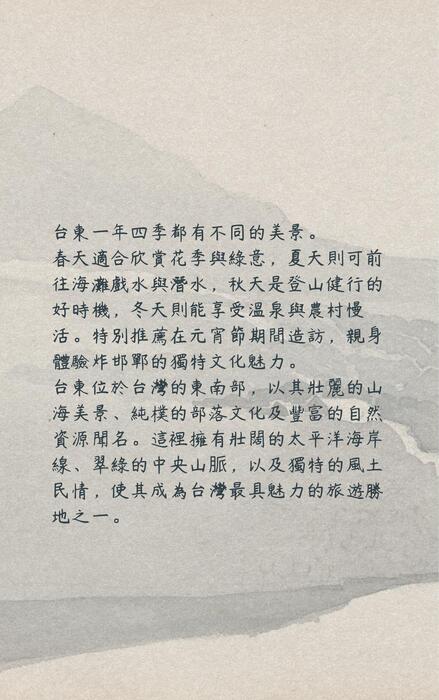 台東一年四季都有不同的美景。
春天適合欣賞花季與綠意，夏天則可前
往海灘戲水與潛水，秋天是登山健行的
好時機，冬天則能享受溫泉與農村慢
活。特別推薦在元宵節期間造訪，親身
體驗炸邯鄲的獨特文化魅力。
台東位於台灣的東南部，以其壯麗的山
海美景、純樸的部落文化及豐富的自然
資源聞名。這裡擁有壯闊的太平洋海岸
線、翠綠的中央山脈，以及獨特的風土
民情，使其成為台灣最具魅力的旅遊勝
地之一。